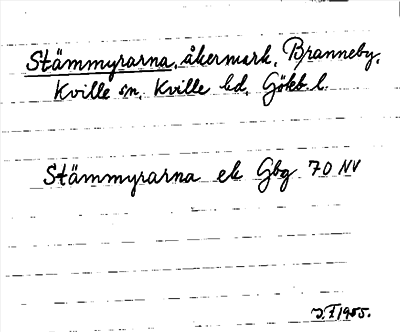 Stämmyrarna, åkermark, Branneby,
Kville sn, Kville hd, Gökb l.
Stämmyrarna ek Gbg 70 NV
1955.